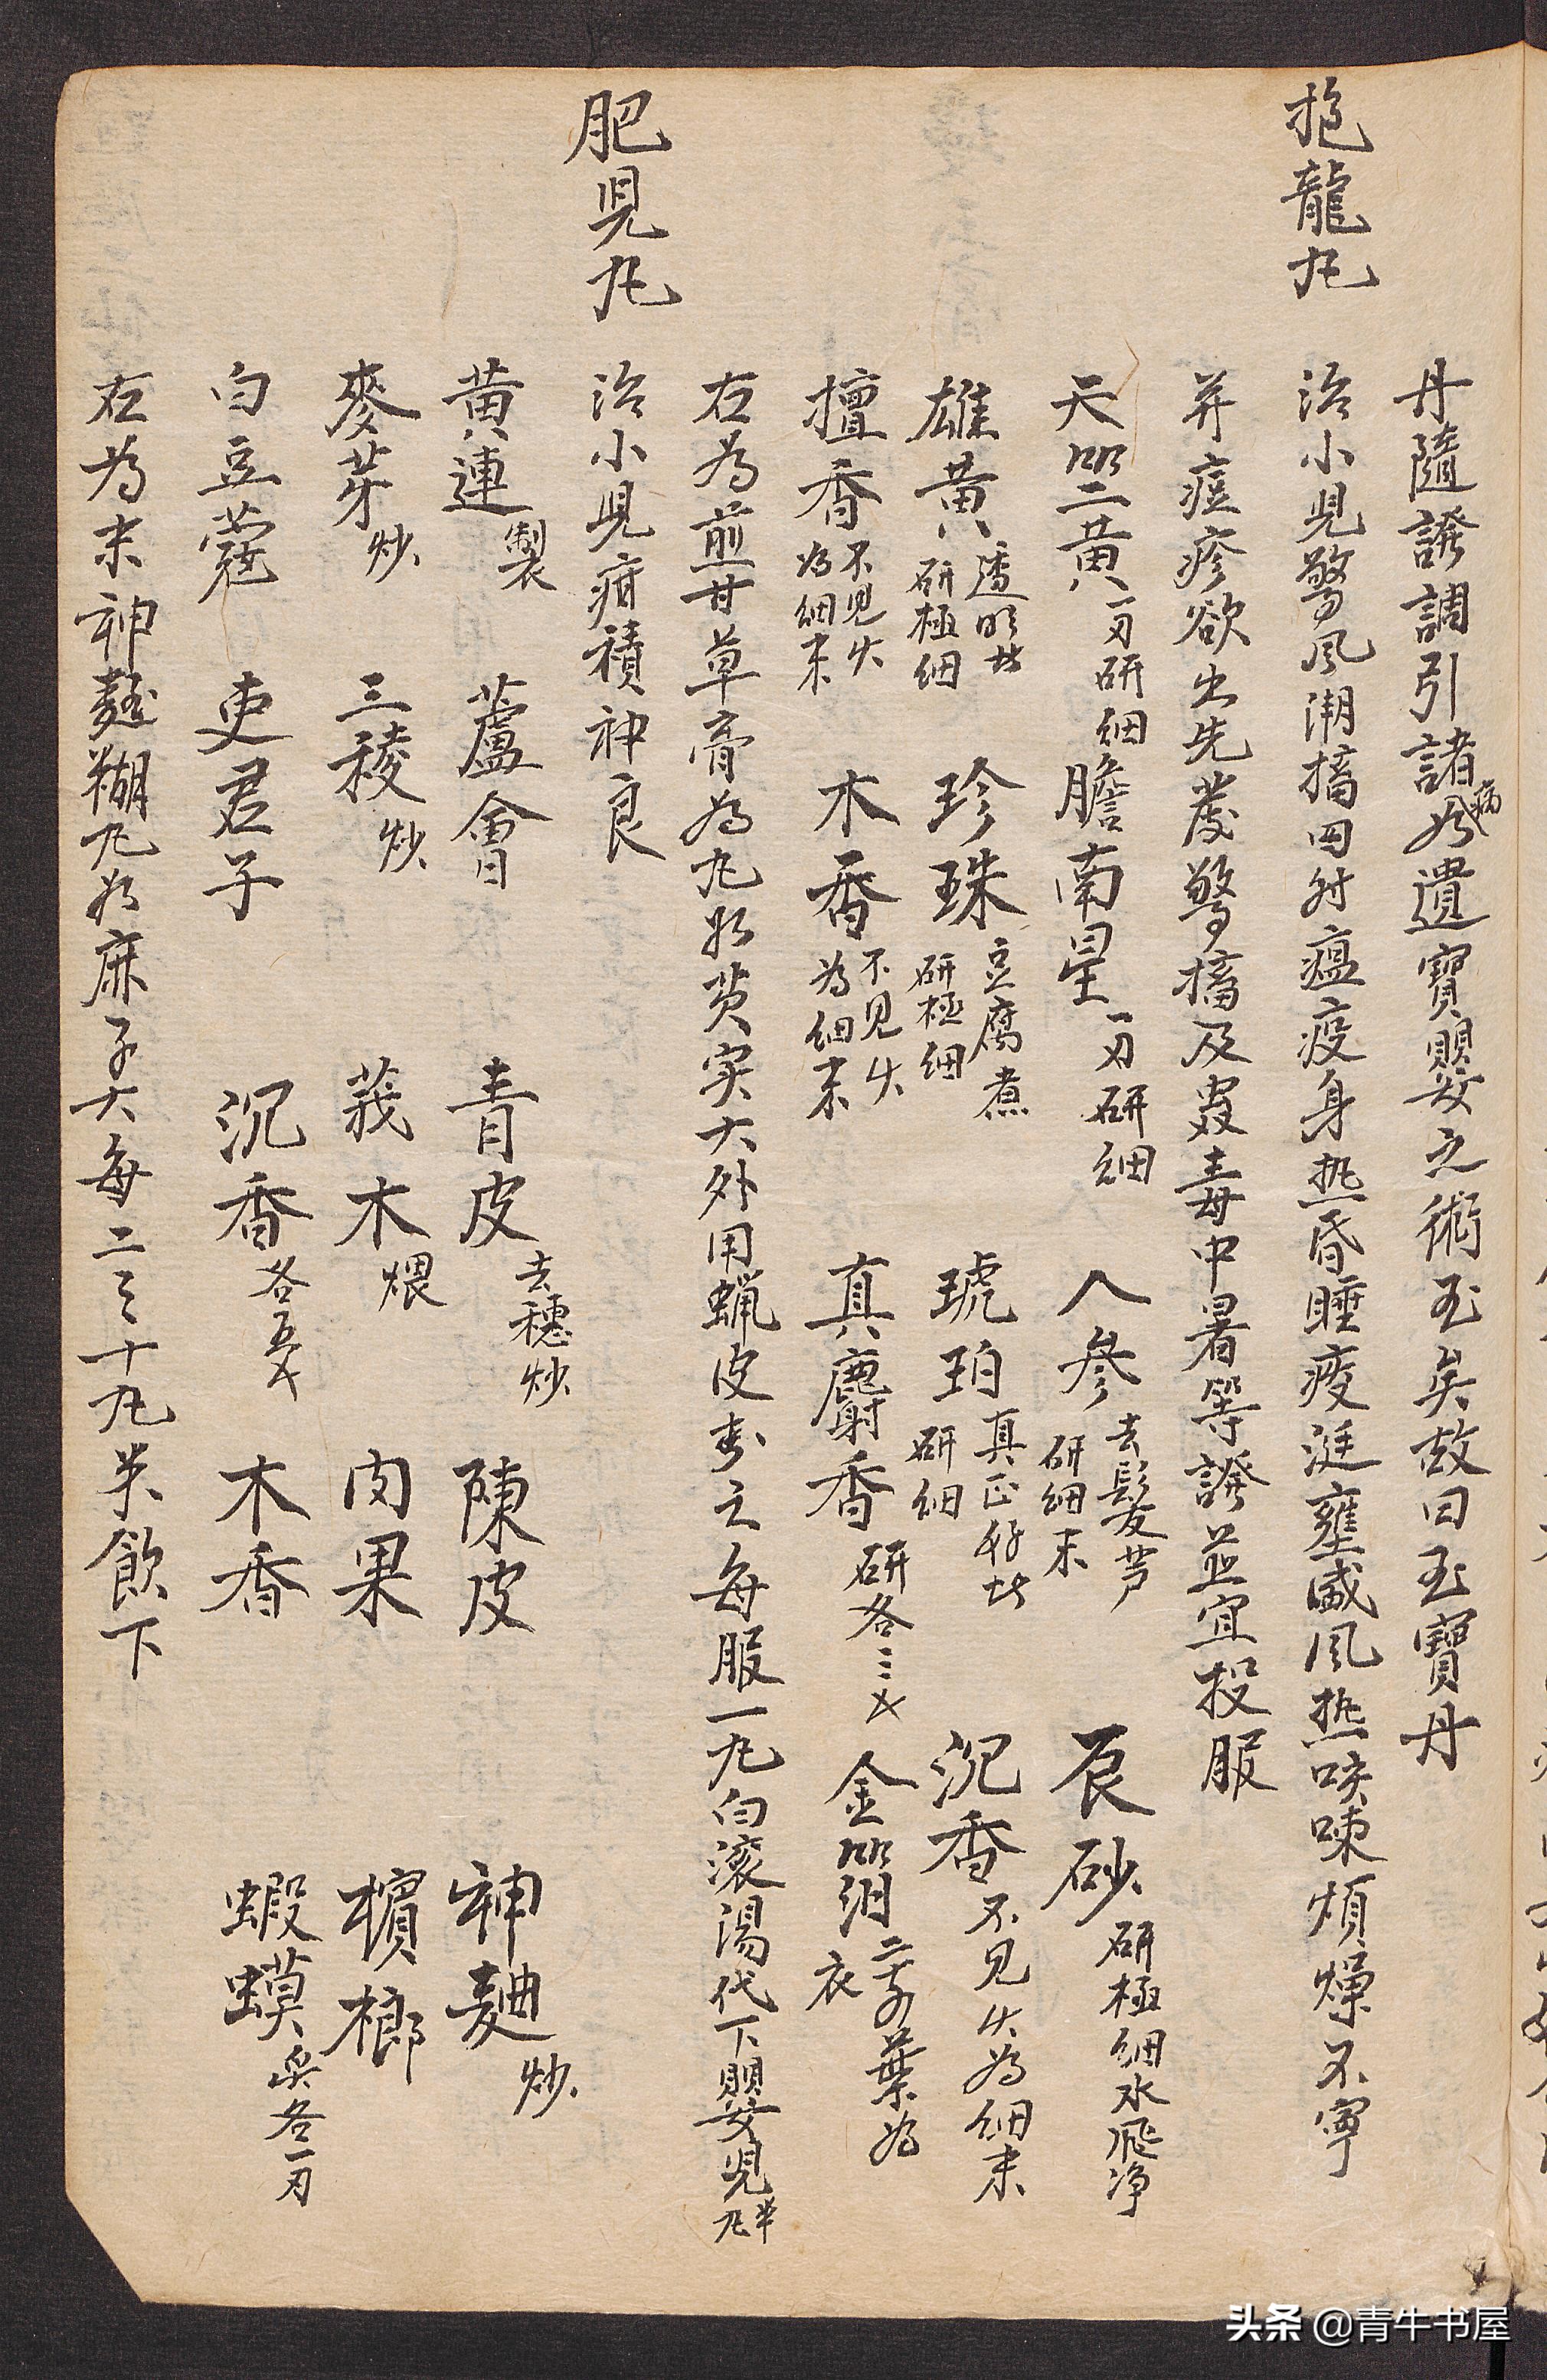 丹隨證調引諸病必遺寶嬰之術至矣故曰至寶丹
抱龍丸
治小児驚風潮搐四时瘟疫身热昏睡痰涎壅盛風热咳嗽煩燥不寧
并痘疹欲出先發驚搐及蠱毒中暑等證並宜投服
天竺黄 一刄研細 膽南星 一刄研細 人參 去鬚芦 研細末 辰砂 研極細水飛净
雄黄 透明好 研極細 珍珠 豆腐煮 研極細 琥珀 真正好 研細 沉香 不見火為細末
擅香 不見火 為細末 木香 不見火 為細末 真麝香 研各三 金箔 二十葉為 衣
右為煎甘草膏為丸如芡实大外用蝋皮之每服一丸白滚湯代下嬰児半丸
肥児丸
治小児疳積神良
黄連 製 蘆會 青皮 去穗炒 陳皮 神麯 炒
麥芽 炒 三稜 炒 莪木 煨 肉果 檳榔
白豆蔻 吏君子 沉香 各五 木香 蝦蟆 各一刄
右為末神麯糊丸如麻子大每二三十丸米飲下
头条 @青牛书屋